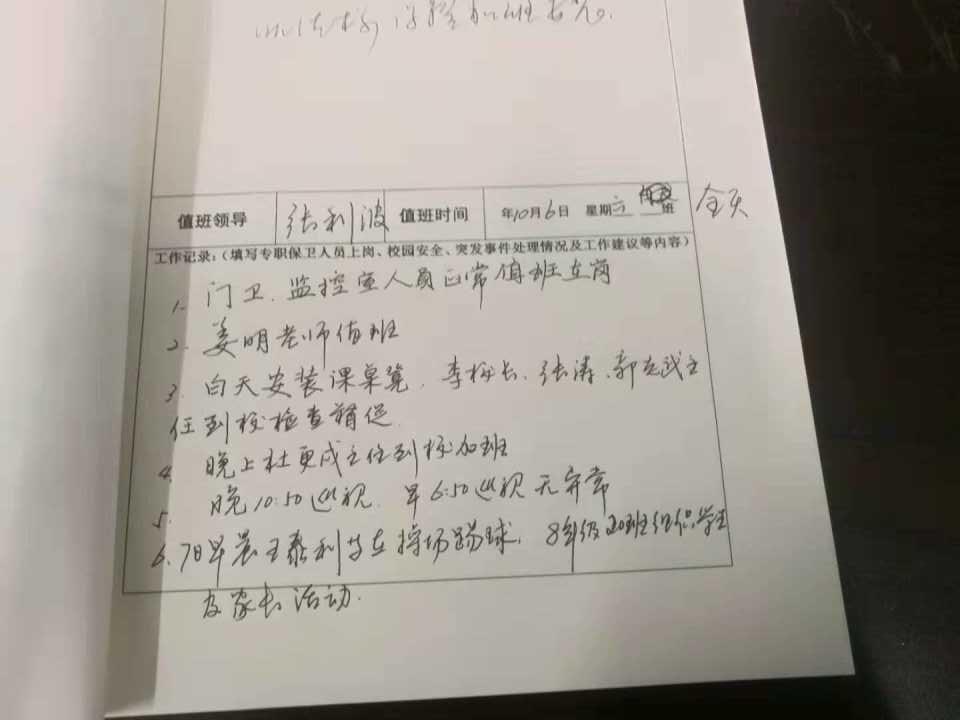 值班领导 张利波 值班时间 年10月6日 星期六 班 全天
工作记录:(填写专职保卫人员上岗、校园安全、突发事件处理情况及工作建议等内容)
1. 门卫、监控室人员正常值班在岗
2. 姜明老师值班
3. 白天安装课桌凳,李校长、张涛、郭克武主
任到校检查督促.
4. 晚上杜更成主任到校加班
5. 晚10:50巡视.早6:50巡视无异常
6. 7日早晨王泰利等在操场踢球,8年级20班组织学生
及家长活动.